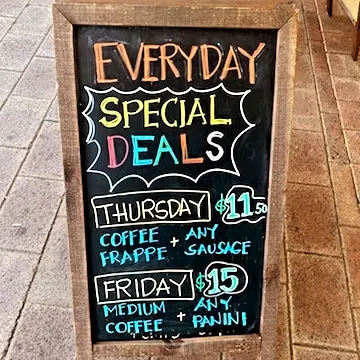 EVERYDAY
SPECIAL
DEALS
THURSDAY $11.50
COFFEE + ANY
FRAPPE SAUSAGE
FRIDAY $15
MEDIUM + ANY
COFFEE PANINI